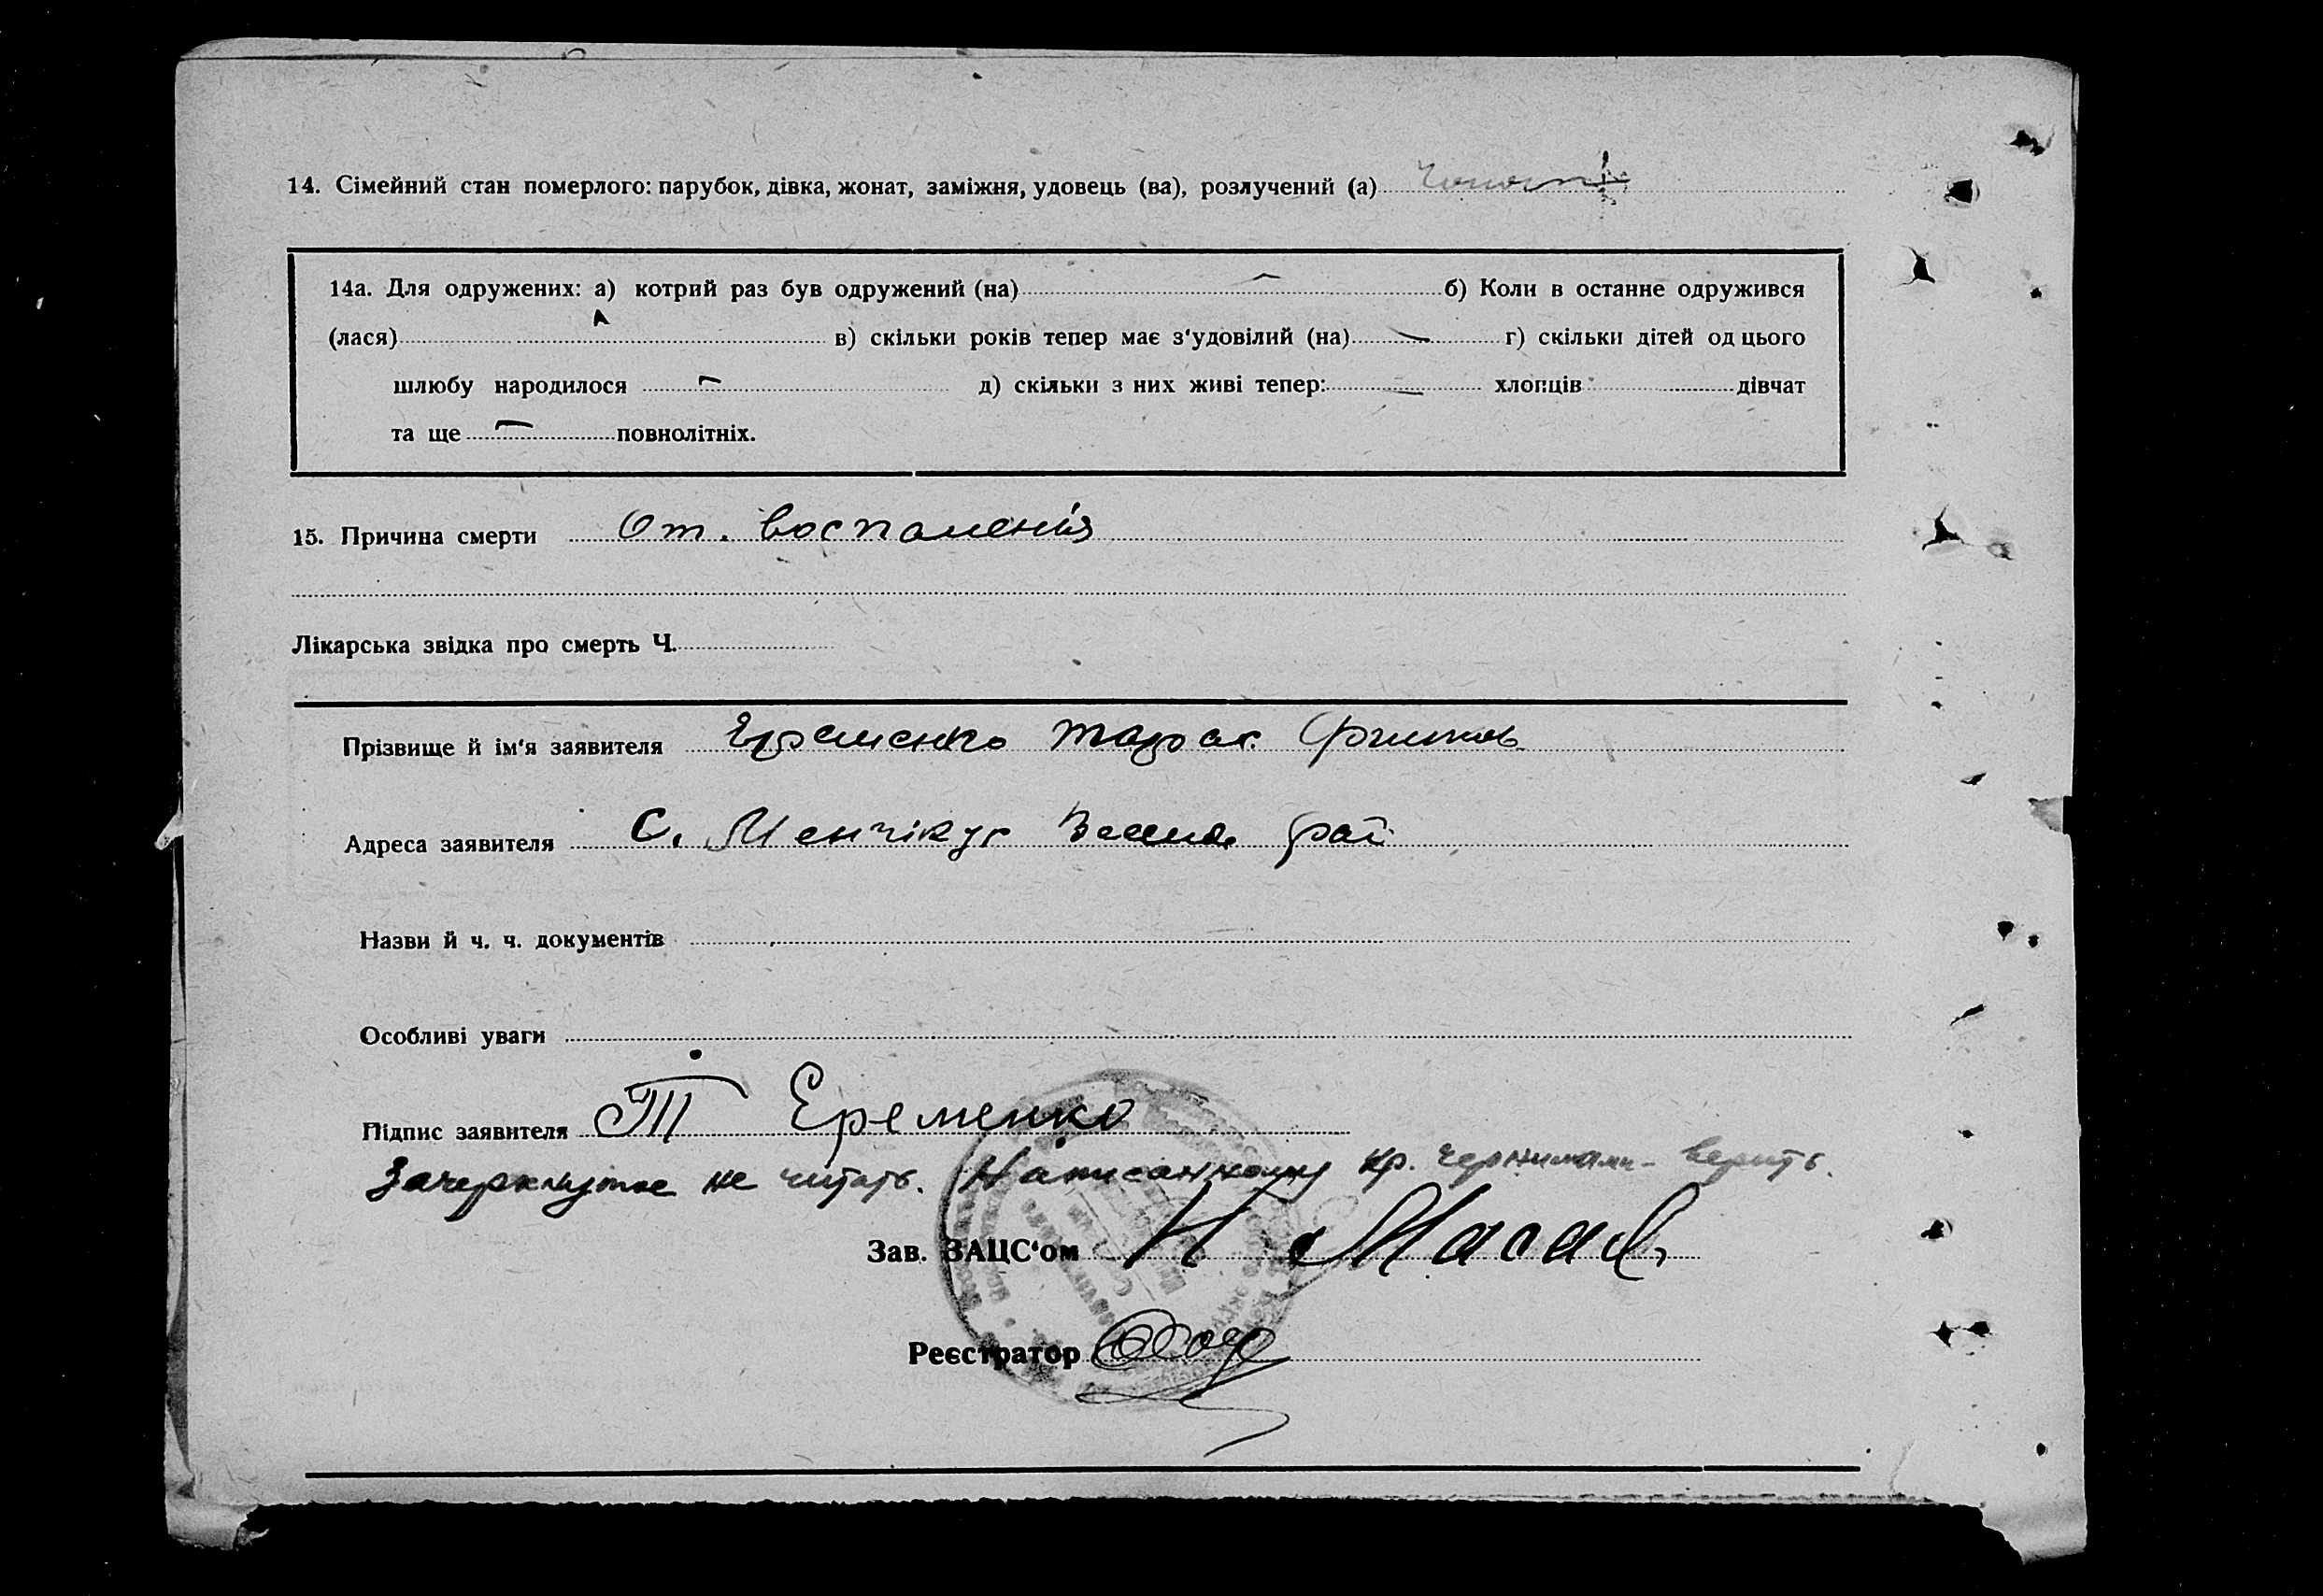 14. Сімейний стан померлого: парубок, дівка, жонат, заміжня, удовець (ва), розлучений (а)
14а. Для одружених: а) котрий раз був одружений (на) б) Коли в останнє одружився
(лася) в) скільки років тепер має з'удовілий (на) — г) скільки дітей од цього
шлюбу народилося — д) скільки з них живі тепер: — хлопців дівчат
та ще — повнолітніх.
15. Причина смерти От. воспаленія
Лікарська звідка про смерть Ч.
Прізвище й ім'я заявителя Єременко Тарас
Адреса заявителя С. Менчікур рай
Назви й ч. ч. документів
Особливі уваги
Підпис заявителя Т Еременко
Зачеркнутое не читать. Написанному кр. чернилами - верить.
Зав. ЗАЦС'ом Н
Реєстратор